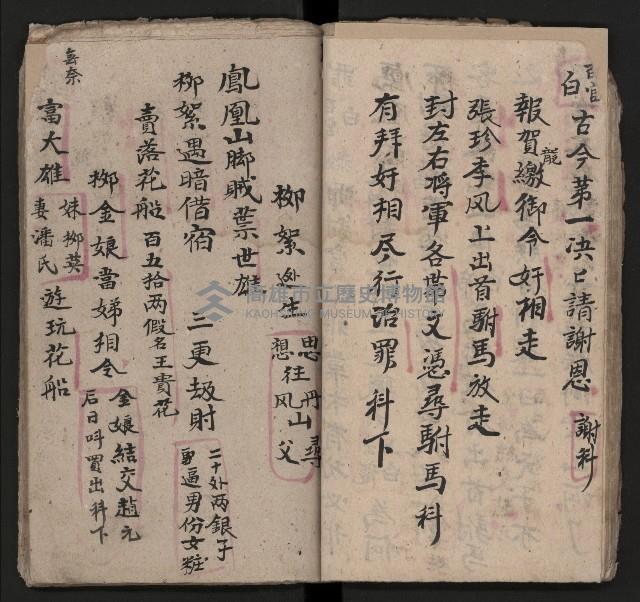 百官
白 古今第一决已請謝恩 謝科
報賀龍繳御令奸相走
張珍李风上出首駙馬放走
封左右將軍各世父憑尋駙馬科
有拜奸相尽行治罪科下
柳絮逃生 思往丹山尋
想 风 父
鳳凰山脚賊葉世雄
柳絮遇暗借宿 三更刼財 二十外两銀子
逼男份女粧
賣落花船 百五拾两假名王貴花
柳金娘當娣相令 金娘結交趙元
后日呌買出科下
喜奈
富大雄 妹柳英 遊玩花船
妻潘氏
高雄市立歷史博物館
KAOHSIUNG MUSEUM OF HISTORY